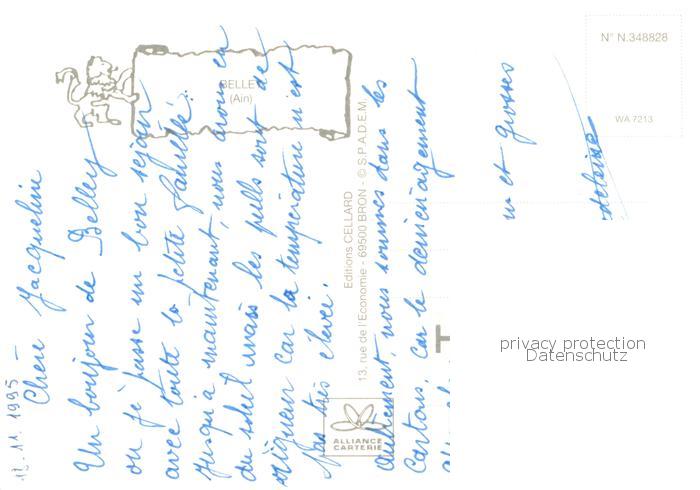 12.11.1995
Chère Jacqueline
Un bonjour de Belley
ou je passe un bon séjour
avec toute la petite famille.
Jusqu'à maintenant, nous avons eu
du soleil mais les pulls sont de
rigueur car la température n'est
pas très élevée.
Autrement, nous sommes dans les
Cartons, car le déménagement
et grosses
BELLEY
(Ain)
Editions CELLARD
13, rue de l'Economie - 69500 BRON - © S.P.A.D.E.M.
ALLIANCE
CARTERIE
N° N.348828
WA 7213
privacy protection
Datenschutz